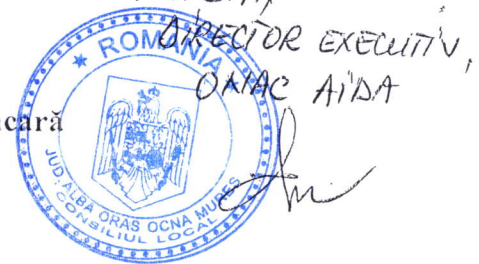 DIRECTOR EXECUTIV,
ONIAC AIDA
cară
ROMÂNIA
JUD. ALBA ORAȘ OCNA MUREȘ
CONSILIUL LOCAL